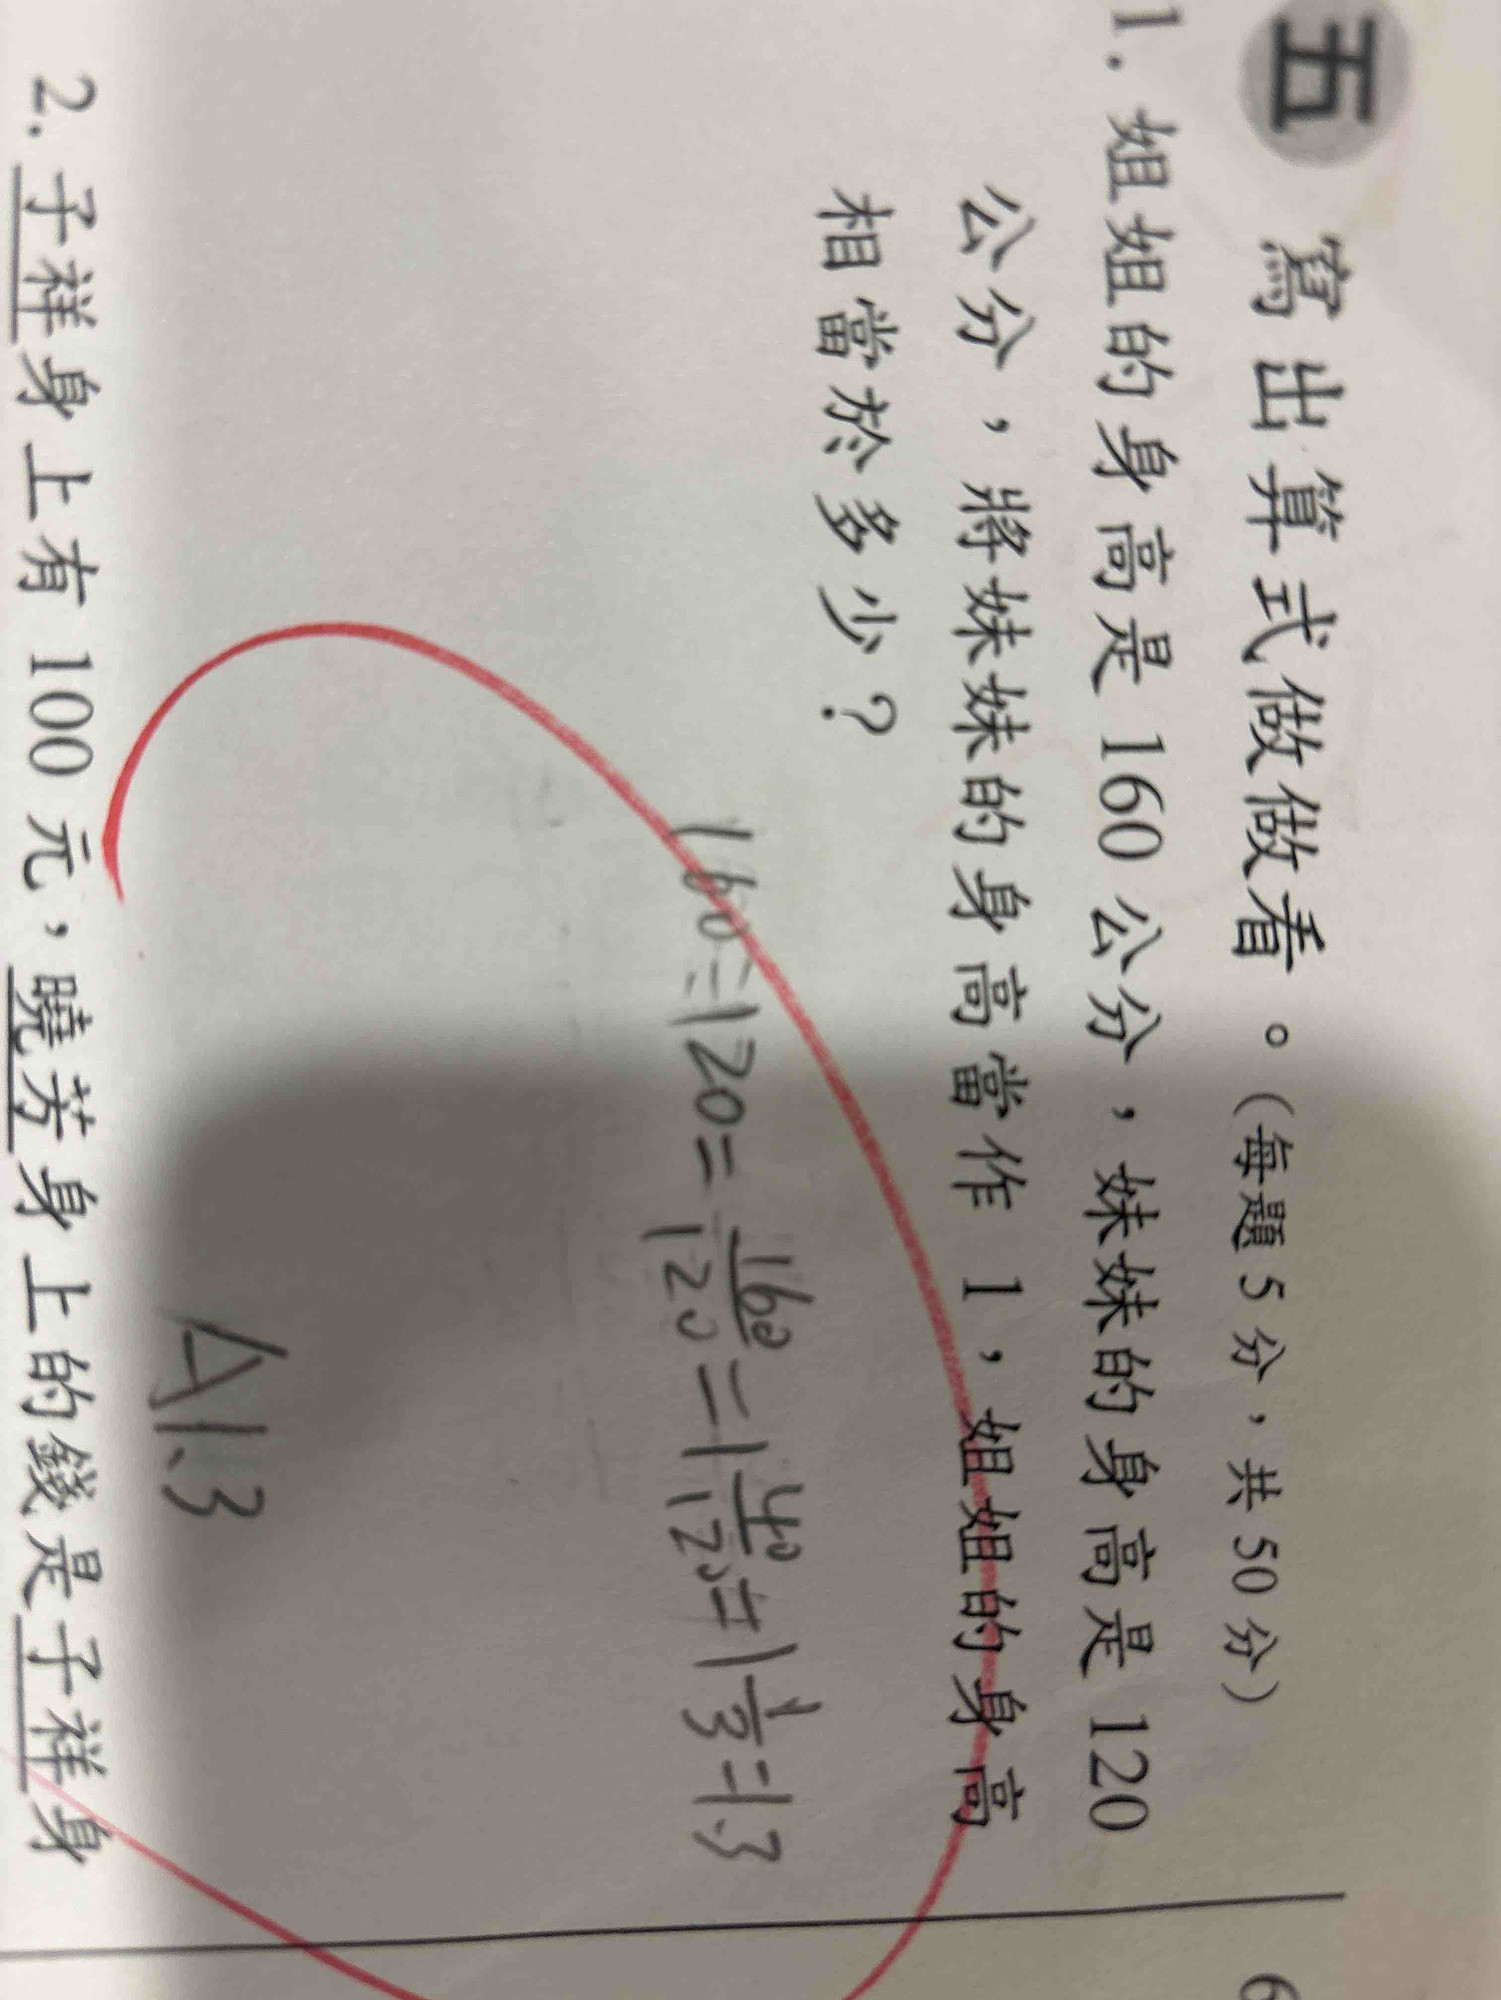 五 寫出算式做做看。(每題5分,共50分)
1. 姐姐的身高是160公分,妹妹的身高是120
公分,將妹妹的身高當作1,姐姐的身高
相當於多少?
160÷120=160/120=1 40/120=1 1/3=1.3
A1.3
2. 子祥身上有100元,曉芳身上的錢是子祥身
6